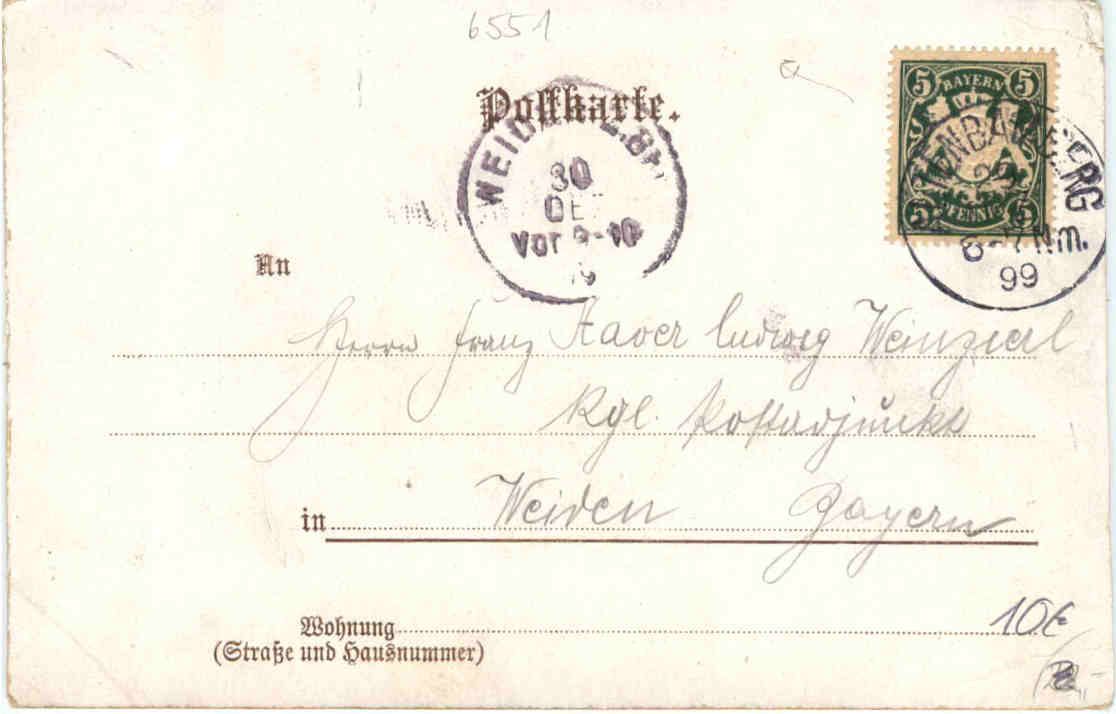 6551
Postkarte.
5 BAYERN 5
5 PFENNIG 5
6-7 Nm.
99
WEIDEN
30
DE
Vor 9-10
An
Herrn Franz Xaver Ludwig Weinzierl
Kgl. Postadjunkt
in Weiden Bayern
10€
Wohnung
(Straße und Hausnummer)